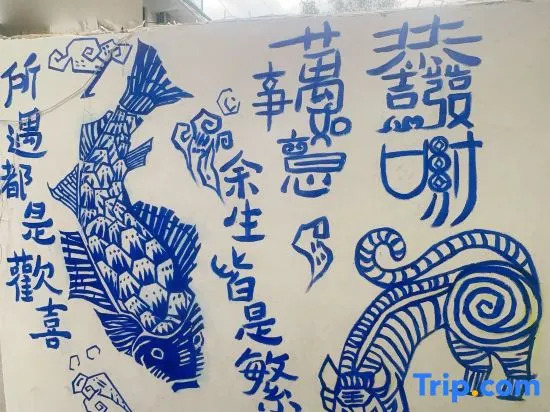 恭喜發財
萬事如意
余生皆是繁
所遇都是歡喜
Trip.com